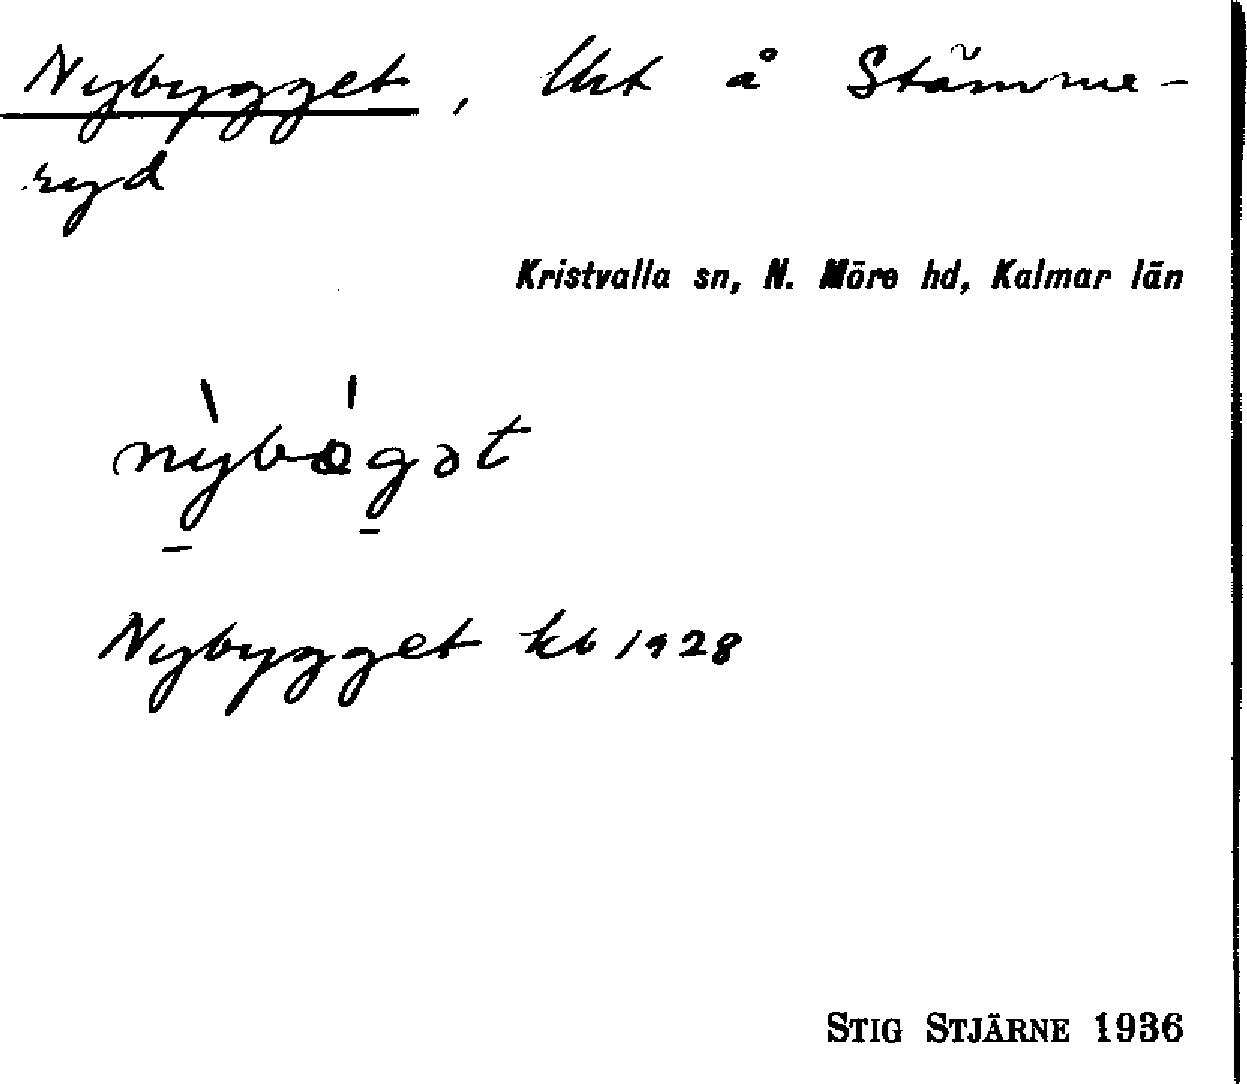 Nybygget, lht å Stämme-
ryd
Kristvalla sn, N. Möre hd, Kalmar län
Nybygget kb 1928
STIG STJÄRNE 1936